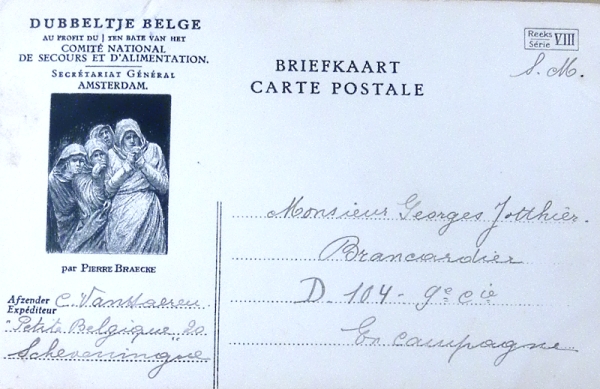 DUBBELTJE BELGE
AU PROFIT DU | TEN BATE VAN HET
COMITÉ NATIONAL
DE SECOURS ET D'ALIMENTATION.
SECRÉTARIAT GÉNÉRAL
AMSTERDAM.
par PIERRE BRAECKE
Afzender
Expéditeur
C. Vanstaeren
"Petite Belgique" 20
Scheveningue
BRIEFKAART
CARTE POSTALE
Reeks
Série VIII
S. M.
Monsieur Georges Jotthier.
Brancardier
D. 104 - 9e cie
En campagne